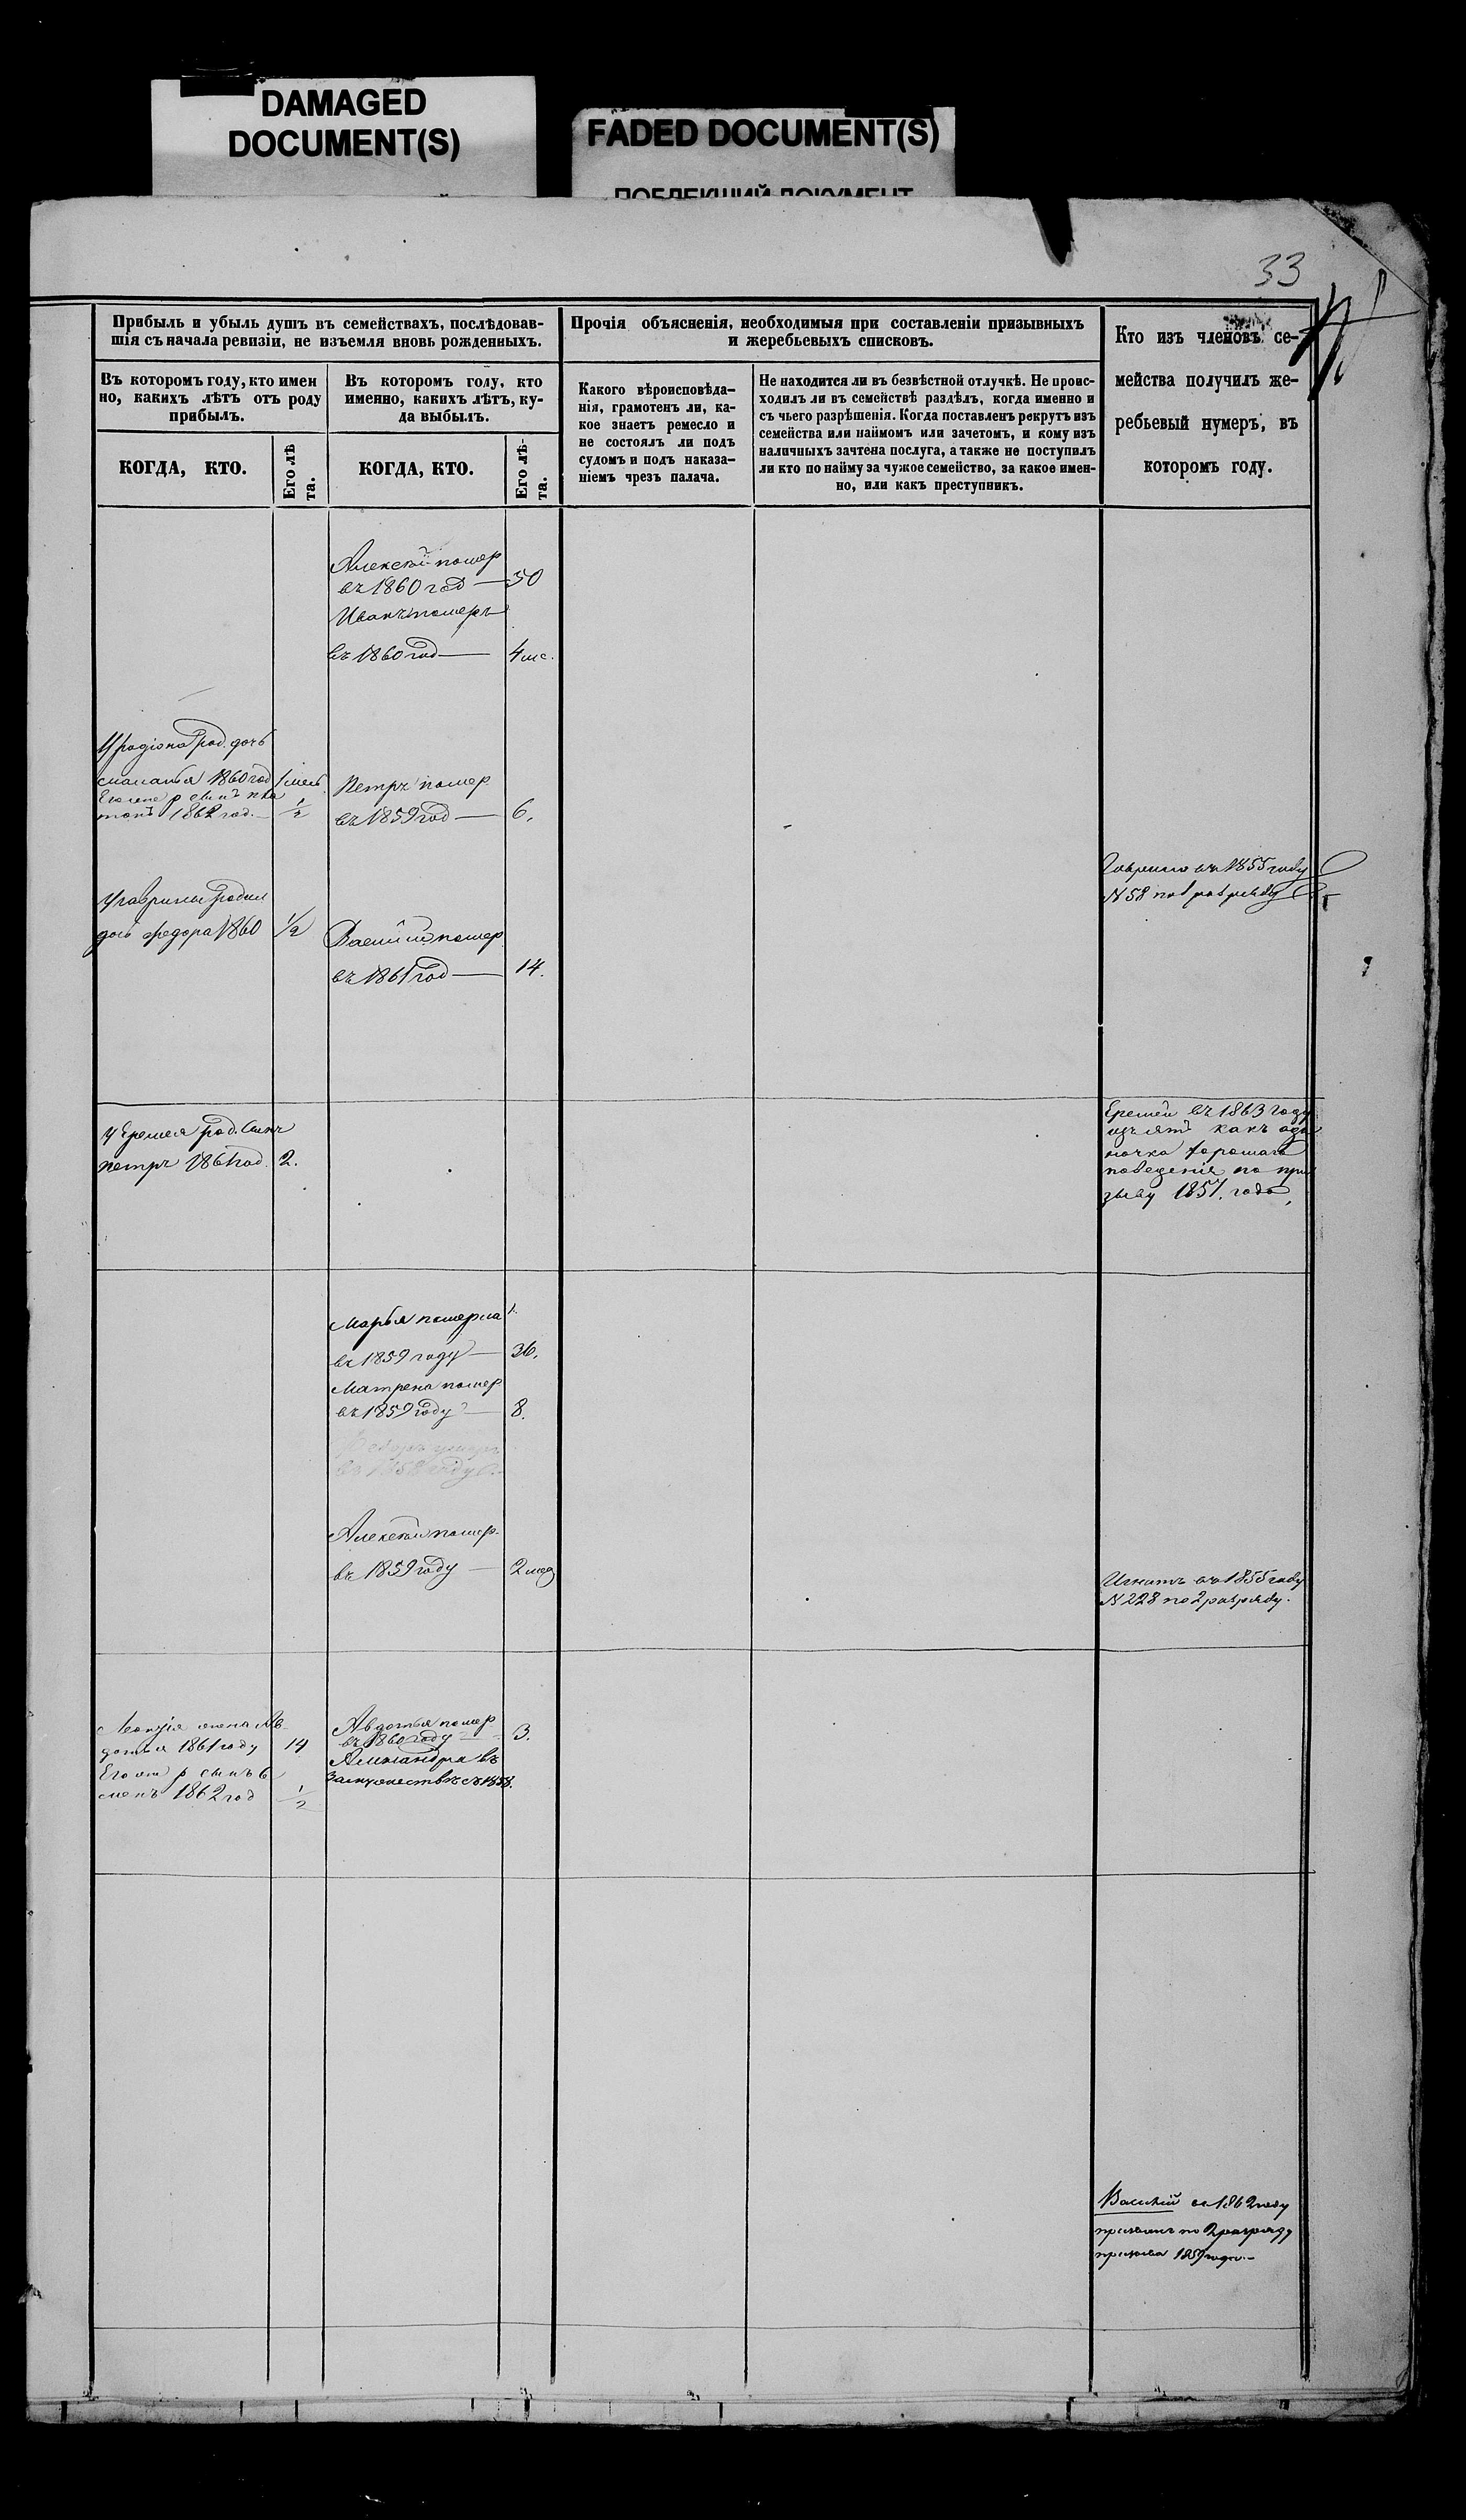 DAMAGED
DOCUMENT(S)
FADED DOCUMENT(S)
ПОБЛЕКШИЙ ДОКУМЕНТ
33
Прибыль и убыль душъ въ семействахъ, послѣдовав-
шія съ начала ревизіи, не изъемля вновь рожденныхъ.
Въ которомъ году, кто имен
но, какихъ лѣтъ отъ роду
прибылъ.
КОГДА, КТО.
Его лѣ
та.
Въ которомъ году, кто
именно, какихъ лѣтъ, ку-
да выбылъ.
КОГДА, КТО.
Его лѣ-
та.
Прочія объясненія, необходимыя при составленіи призывныхъ
и жеребьевыхъ списковъ.
Какого вѣроисповѣда-
нія, грамотенъ ли, ка-
кое знаетъ ремесло и
не состоялъ ли подъ
судомъ и подъ наказа-
ніемъ чрезъ палача.
Не находится ли въ безвѣстной отлучкѣ. Не проис-
ходилъ ли въ семействѣ раздѣлъ, когда именно и
съ чьего разрѣшенія. Когда поставленъ рекрутъ изъ
семейства или наймомъ или зачетомъ, и кому изъ
наличныхъ зачтена послуга, а также не поступилъ
ли кто по найму за чужое семейство, за какое имен-
но, или какъ преступникъ.
Кто изъ членовъ се-
мейства получилъ же-
ребьевый нумеръ, въ
которомъ году.
Алексѣй помер
въ 1860 год — 50
Иванъ померъ
въ 1860 год — 4 мс.
У радіона род. дочь
маланья 1860 год 1 мець
р сынъ
1862 год. — 1/2
Петръ помер
въ 1859 год — 6.
Гаврило въ 1855 году
N 58 по разряду
У гаврилы родил
дочь федора 1860 1/2
Василій помер
въ 1861 год — 14.
У Еремея род. Сынъ
петръ 1861 год. 2.
Еремей въ 1863 году
изъятъ какъ оди
ночка хорошаго
поведенія по при
зыву 1857. года,
Марья померла
въ 1859 году — 36.
Матрена помер
въ 1859 году — 8.
умеръ
въ 1858 году
Алексѣй помер.
въ 1859 году — 2 мец
Игнатъ въ 1855 году
N 228 по 2 разряду.
жена Ав-
дотья 1861 году 14
р сынъ Се
менъ 1862 год 1/2
Авдотья помер
въ 1860 году — 3.
Александра въ
Замужествѣ съ 1858.
Василій въ 1862 году
призванъ по 2 разряду
призыва 1859 года.-